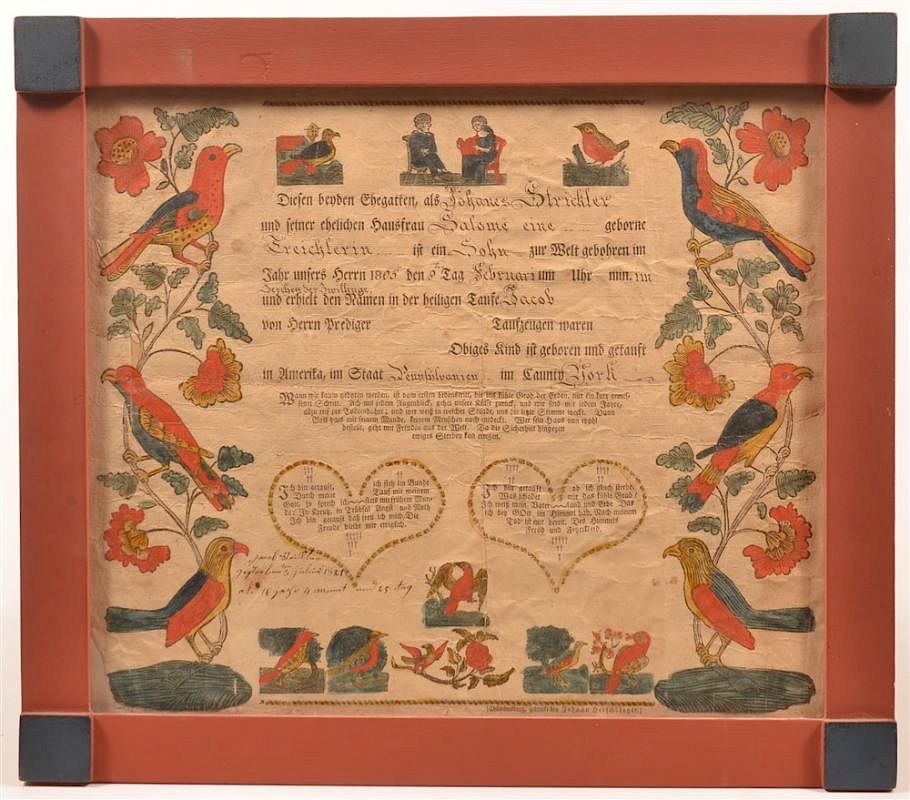 Diesen beyden Ehegatten, als Johanes Strickler
und seiner ehelichen Hausfrau Salome eine geborne
Treichlerin ist ein Sohn zur Welt gebohren im
Jahr unsers Herrn 1805 den 5 Tag Februari um Uhr min. im
Zeichen der Zwillinge,
und erhielt den Namen in der heiligen Taufe Jacob
von Herrn Prediger Taufzeugen waren
Obiges Kind ist geboren und getauft
in Amerika, im Staat Pennsylvanien im Caunty York
Wann wir kaum geboren werden, ist vom ersten Lebenstritt, bis ins kühle Grab der Erden, nur ein kurz gemes-
sener Schritt. Ach mit jedem Augenblick, gehet unsre Kraft zurück, und wir sind mit jedem Jahre,
allzu reif zur Todtenbahre; und wer weiß in welcher Stunde, uns die letzte Stimme weckt. Dann
Gott hats mit seinem Munde, keinem Menschen noch entdeckt. Wer sein Haus nun wohl
bestellt, geht mit Freuden aus der Welt. Da die Sicherheit hingegen
ewiges Sterben kan erregen.
Ich bin getauft, ich steh im Bunde
Durch meine Tauf mit meinem
Gott, so sprech ich stets mit frohem Mun-
de: In Kreutz, in Trübsal Angst und Noth
Ich bin getauft deß freu ich mich. Die
Freude bleibt mir ewiglich.
Ich bin getauft ob ich gleich sterbe,
Was schadet mir das kühle Grab?
Ich weiß mein Vaterland und Erbe Das
ich bey GOtt im Himmel hab, Nach meinem
Tod ist mir bereit. Des Himmels
Freud und Feyerkleid.
Jacob Strickler
5 1821
alt 16 Jahr 4 monat und 25 tag